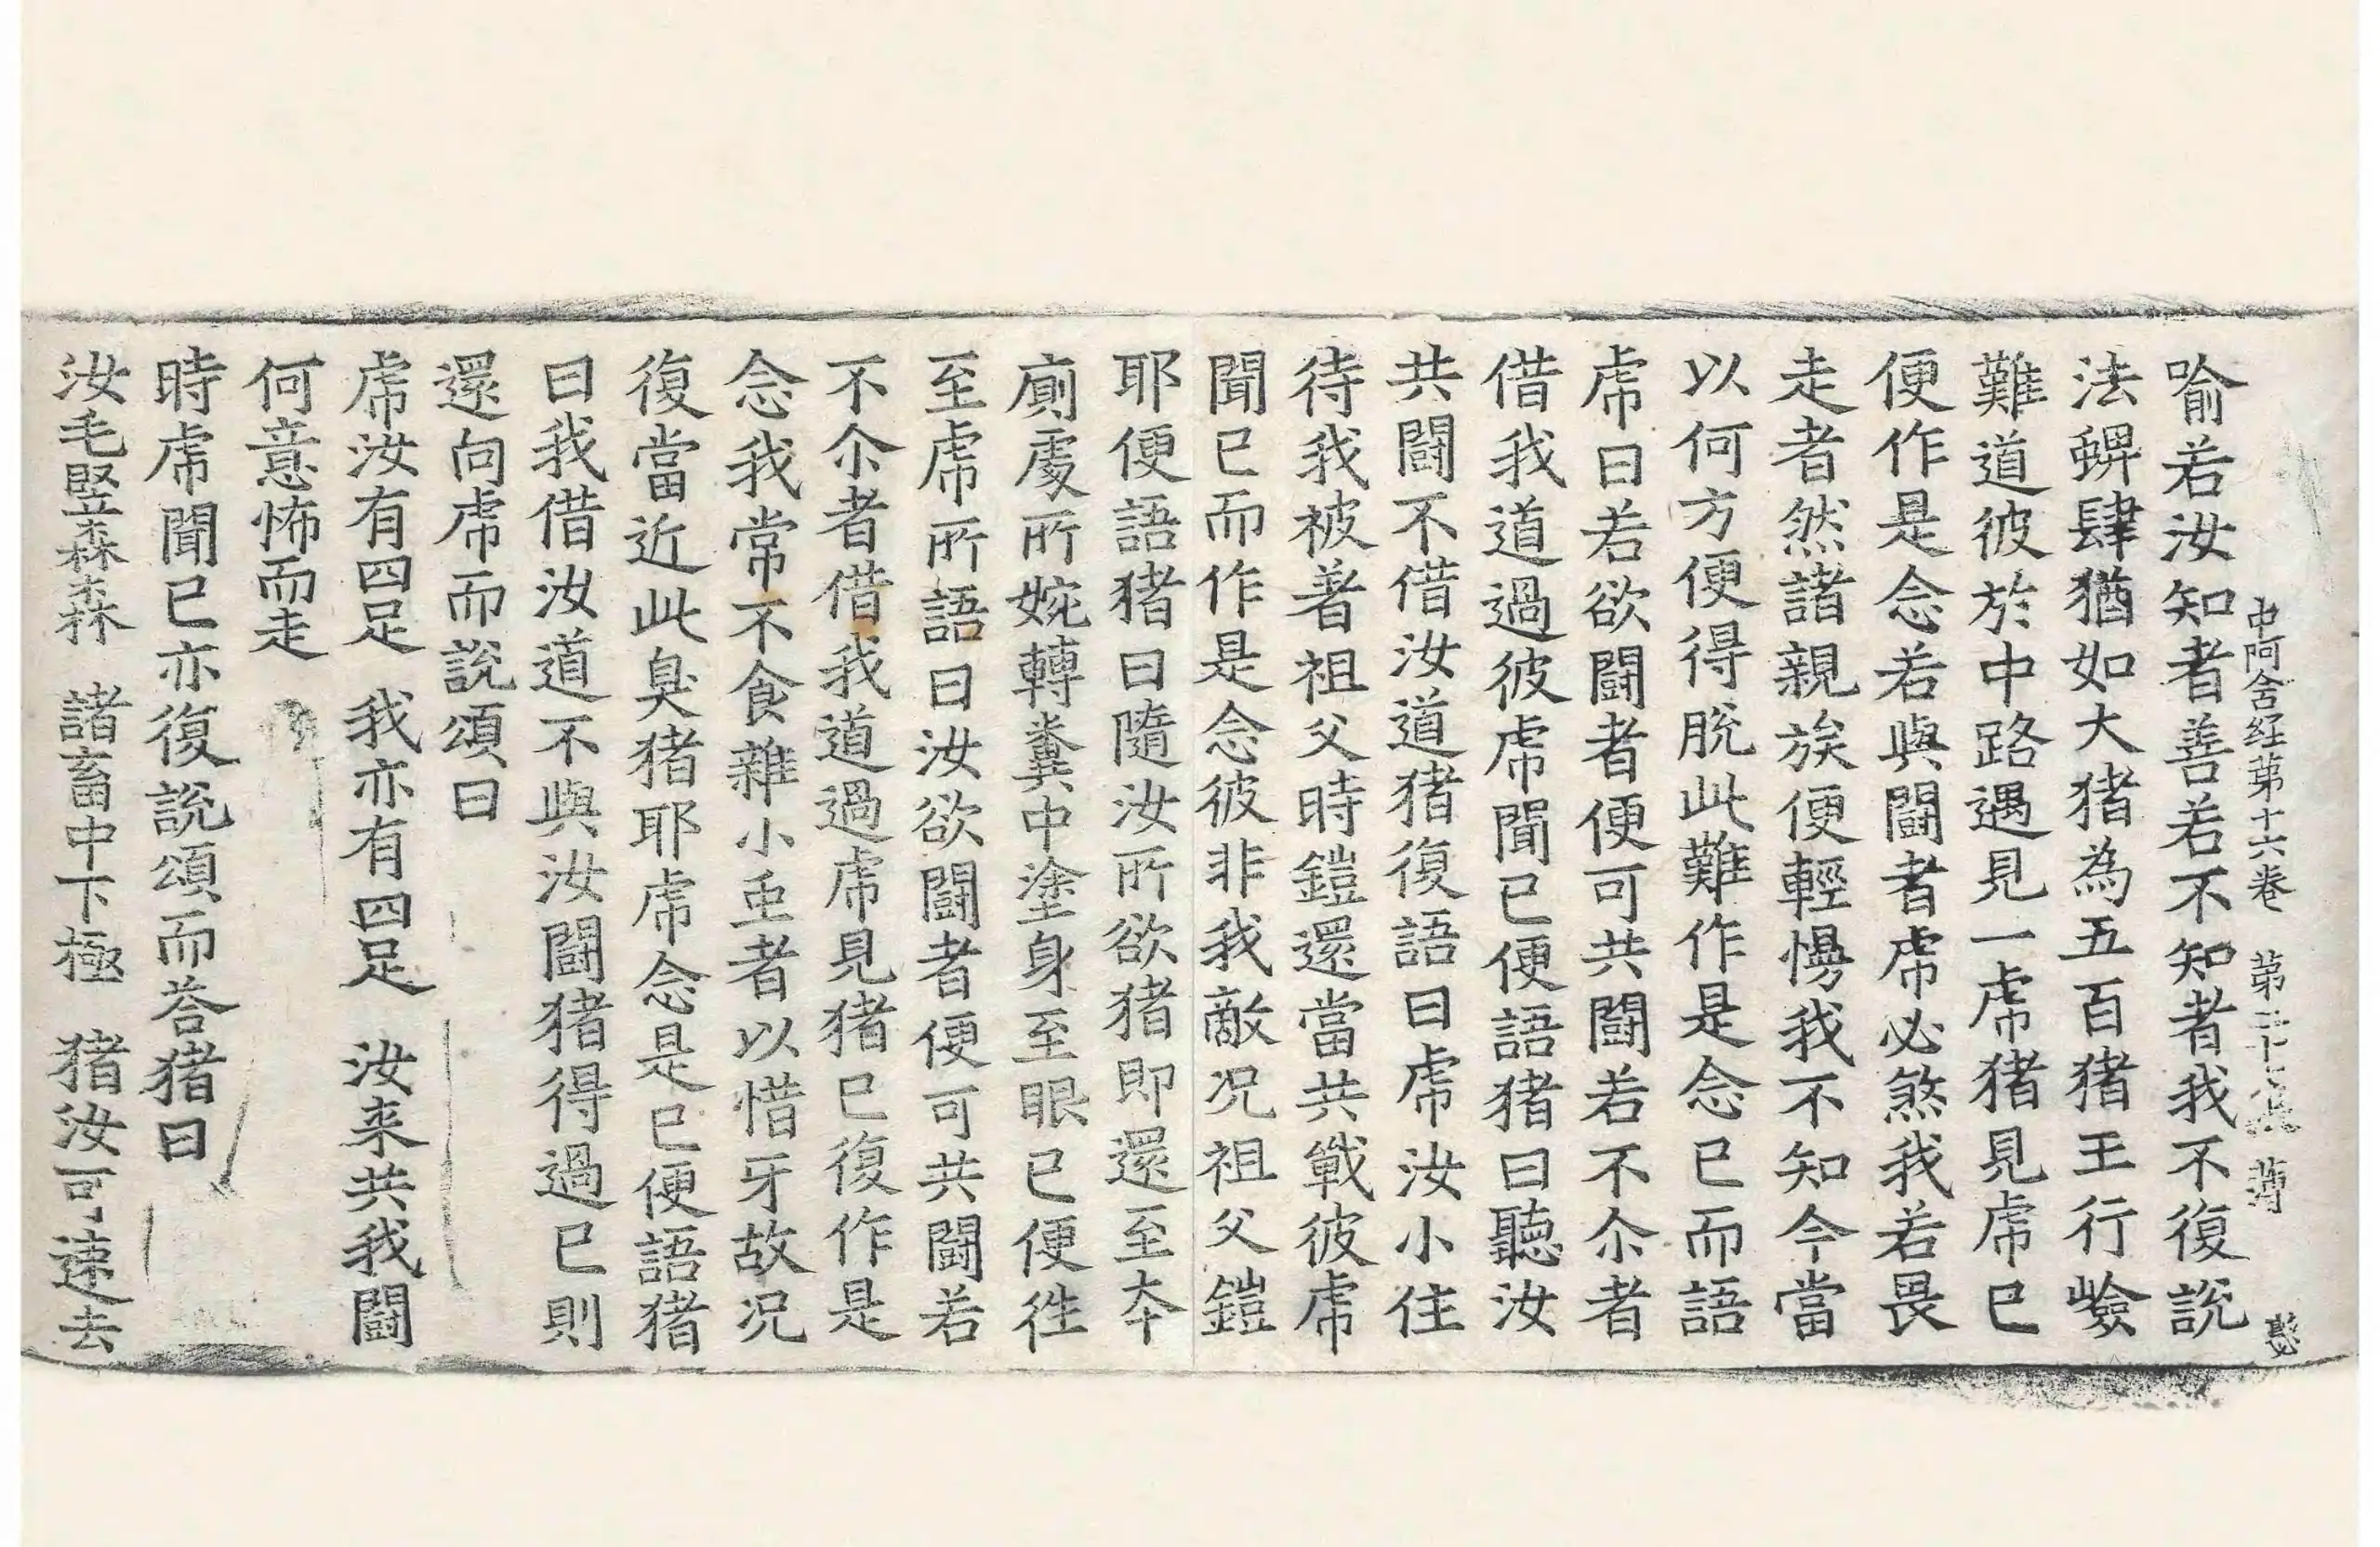 中阿含经第十六卷 第二十七張 薄
喻若汝知者善若不知者我不復說
法蜱肆猶如大猪為五百猪王行嶮
難道彼於中路遇見一虎猪見虎已
便作是念若與鬪者虎必煞我若畏
走者然諸親族便輕慢我不知今當
以何方便得脫此難作是念已而語
虎曰若欲鬪者便可共鬪若不尒者
借我道過彼虎聞已便語猪曰聽汝
共鬪不借汝道猪復語曰虎汝小住
待我被著祖父時鎧還當共戰彼虎
聞已而作是念彼非我敵况祖父鎧
耶便語猪曰隨汝所欲猪即還至夲
廁處所婉轉糞中塗身至眼已便徃
至虎所語曰汝欲鬪者便可共鬪若
不尒者借我道過虎見猪已復作是
念我常不食雜小䖝者以惜牙故况
復當近此臭猪耶虎念是已便語猪
曰我借汝道不與汝鬪猪得過已則
還向虎而說頌曰
虎汝有四足 我亦有四足 汝来共我鬪
何意怖而走
時虎聞已亦復說頌而荅猪曰
汝毛竪森森 諸畜中下極 猪汝可速去